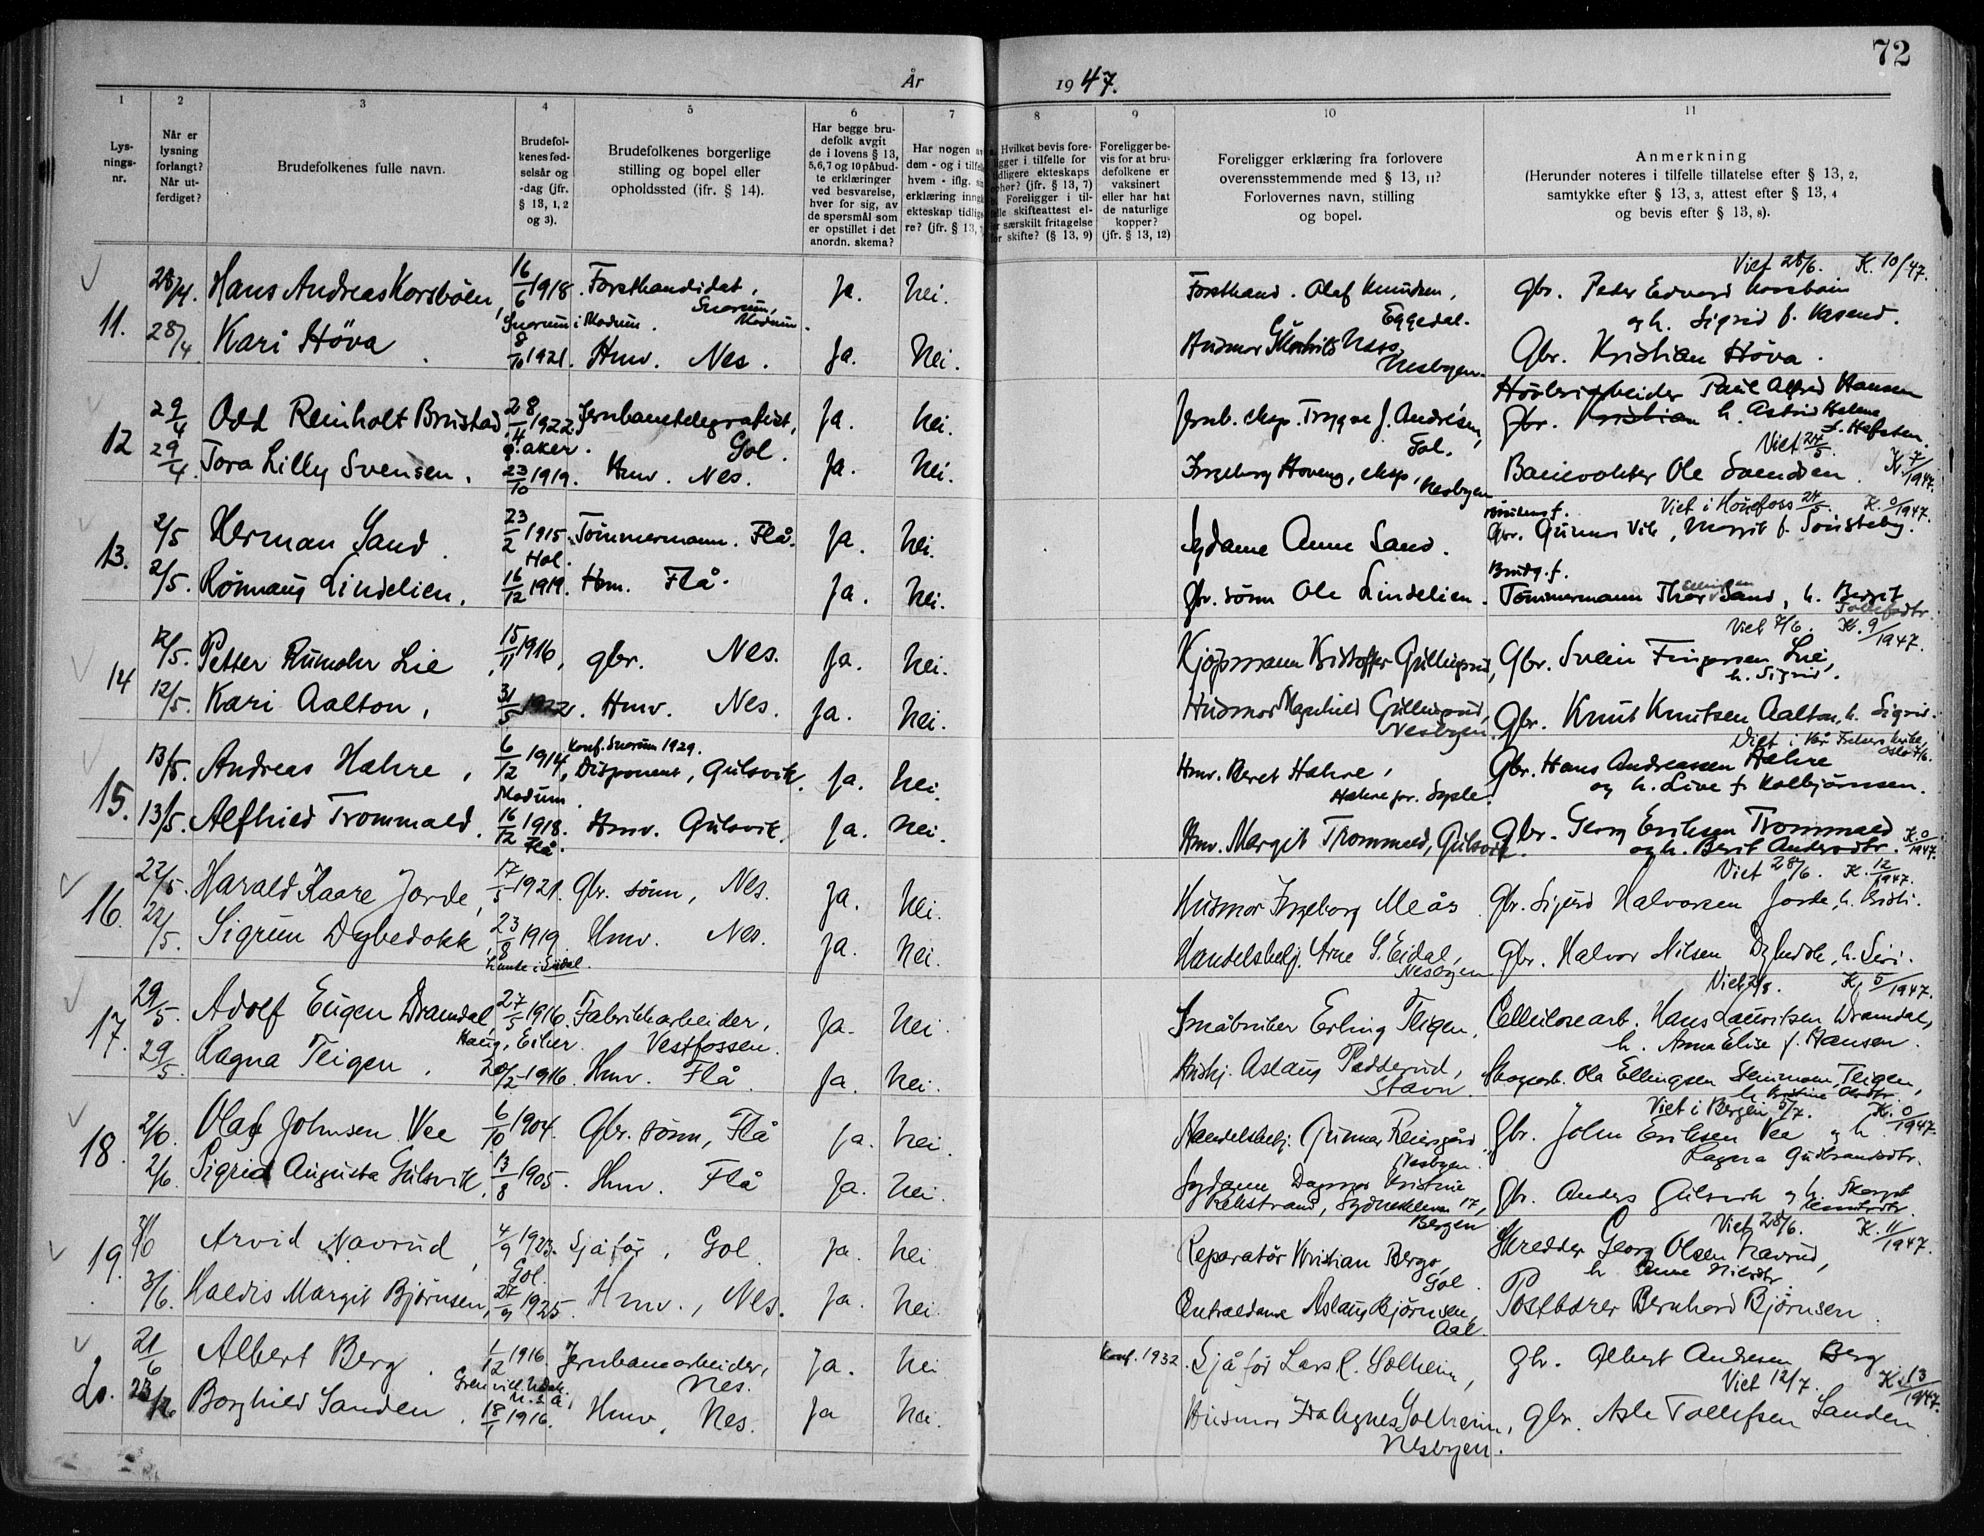 72
År 1947.
1 2 3 4 5 6 7 8 9 10 11
Lys-
nings-
nr.
Når er
lysning
forlangt?
Når ut-
ferdiget?
Brudefolkenes fulle navn.
Brudefol-
kenes fød-
selsår og
-dag (jfr.
§ 13, 1, 2
og 3).
Brudefolkenes borgerlige
stilling og bopel eller
opholdssted (jfr. § 14).
Har begge bru-
defolk avgit
de i lovens § 13,
5,6,7 og 10 påbud-
te erklæringer
ved besvarelse,
hver for sig, av
de spørsmål som
er opstillet i det
anordn. skema?
Har nogen av
dem - og i tilfelle
hvem - iflg.
erklæring inngå
ekteskap tidlige-
re? (jfr. § 13,
Hvilket bevis fore-
ligger i tilfelle for
tidligere ekteskaps
ophør? (jfr. § 13, 7)
Foreligger i til-
felle skifteattest el-
ler særskilt fritagelse
for skifte? (§ 13, 9)
Foreligger be-
vis for at bru-
defolkene er
vaksinert
eller har hat
de naturlige
kopper?
(jfr. § 13, 12)
Foreligger erklæring fra forlovere
overensstemmende med § 13, 11?
Forlovernes navn, stilling
og bopel.
Anmerkning
(Herunder noteres i tilfelle tillatelse efter § 13, 2,
samtykke efter § 13, 3, attest efter § 13, 4
og bevis efter § 13, 8).
Viet 28/6. K. 10/47.
11. 28/4. Hans Andreas Korsbøen, 16/6 1918. Forstkandidat, Ja. Nei. Forstkand. Olaf Knudsen, Gbr. Peder Edvard Korsbøen
Snarum i Modum. Snarum, Modum. Eggedal. og h. Sigrid f.
28/4 Kari Høva. 8/10 1921. Hmv. Nes. Ja. Nei. Husmor Næss, Nesbyen. Gbr. Kristian Høva.
Høvleriarbeider Paul Alfred Hansen
12 29/4 Odd Reinholt Brustad 28/4 1922. Jernbanetelegrafist, Ja. Nei. Jernb. eksp. Trygve J. Andresen, Gbr. Kristian h. Astrid Helene
Aker. Gol. Gol. Viet 24/5.
29/4 Tora Lilly Svensen. 23/10 1919. Hmv. Nes. Ja. Nei. Ingeborg Hoveng, eksp, Nesbyen Banevokter Ole Svendsen. K. 7/1947.
Viet i Hønefoss 24/5. K. 0/1947.
13. 2/5 Herman Sand. 23/2 1915. Tømmermann. Flå. Ja. Nei. Sydame Anne Sand. Gbr. Gunnar Vik, Margit f. Sønsteby.
Hol. Brudg. f.
2/5. Rønnaug Lindelien. 16/12 1919. Hm. Flå. Ja. Nei. Gbr. sønn Ole Lindelien. Tømmermann Thor Ellingsen Sand, h. Bergit
Tollefsdtr.
Viet 7/6. K. 9/1947.
14 12/5. Petter Rumohr Lie, 15/11 1916, gbr. Nes. Ja. Nei. Kjøpmann Kristoffer Gulliksrud, Gbr. Svein Lie,
h. Sigrid.
12/5. Kari Aalton, 31/5 1922. Hmv. Nes. Ja. Nei. Husmor Magnhild Nesbyen. Gbr. Knut Knutsen Aalton, h. Sigrid.
Viet i Vår Frelsers kirke, Oslo 7/6.
15. 13/5. Andreas Hahre, 6/12 1914, Konf. Snarum 1929. Disponent, Gulsvik. Ja. Nei. Hmv. Beret Hahre, Gbr. Hans Andreassen Hahre
Modum. Hahre pr. og h. Live f. Kolbjørnsen.
13/5. Alfhild Trommald. 16/12 1918. Hmv. Gulsvik. Ja. Nei. Hmv. Margit Trommald, Gulsvik. Gbr. Georg Eriksen Trommald
Flå. og h. Berit Andersdtr. K. 0/1947.
Viet 28/6. K. 12/1947.
16. 22/5. Harald Kaare Jorde, 17/5 1921. Gbr. sønn, Nes. Ja. Nei. Husmor Ingeborg Meås. Gbr. Sigurd Halvorsen Jorde, h.
22/5. Sigrun Dybedokk, 23/8 1919. Hmv. Nes. Ja. Nei. Handelsbetj. Arne S. Eidal, Nesbyen Gbr. Halvor Nilsen, h. Siri.
K. 5/1947.
17. 29/5. Adolf Eugen Dramdal, 27/5 1916. Fabrikkarbeider, Ja. Nei. Småbruker Erling Teigen, Cellulosearb. Hans Lauritsen Dramdal,
Haug, Eiker. Vestfossen. h. Anna Elise f. Hansen.
29/5 Ragna Teigen. 20/2 1916. Hmv. Flå. Ja. Nei. Aslaug Pedderud, Stavn. Skogsarb. Ola Ellingsen Teigen,
Viet i Bergen 5/7. K. 0/1947.
18. 2/6. Olaf Johnsen Vee 6/10 1904. Gbr. sønn, Flå Ja. Nei. Handelsbetj. Gunnar Reiersgård Nesbyen. Gbr. John Eriksen Vee og h.
Ragna Gudbrandsdtr.
2/6. Sigrid Augusta Gulsvik. 13/8 1905. Hmv. Flå Ja. Nei. Sydame Dagmar Kristine Gbr. Anders Gulsvik og h.
Rekstrand, 17, Bergen
Viet 28/6. K. 11/1947.
19. 3/6 Arvid Navrud, 4/9 1923. Sjåfør, Gol. Ja. Nei Reparatør Kristian Berge, Gol. Skredder Georg Olsen Navrud,
Gol. h. Anne Nilsdtr.
3/6. Haldis Margit Bjørnsen, 27/9 1925. Hmv., Nes. Ja. Nei. Centraldame Aslaug Bjørnsen, Aal. Postbærer Bernhard Bjørnsen.
20. 21/6 Albert Berg. 1/12 1916 Jernbanearbeider, Ja. Nei Konf. 1932. Sjåfør Lars R. Solheim, Gbr. Albert Andresen Berg
N. Dak. U.S.A. Nes. Viet 12/7. K. 13/1947.
23/6 Borghild Sanden. 18/1 1916. Hmv, Nes. Ja Nei. Husmor Agnes Solheim, Gbr. Asle Tollefsen Sanden
Nesbyen.